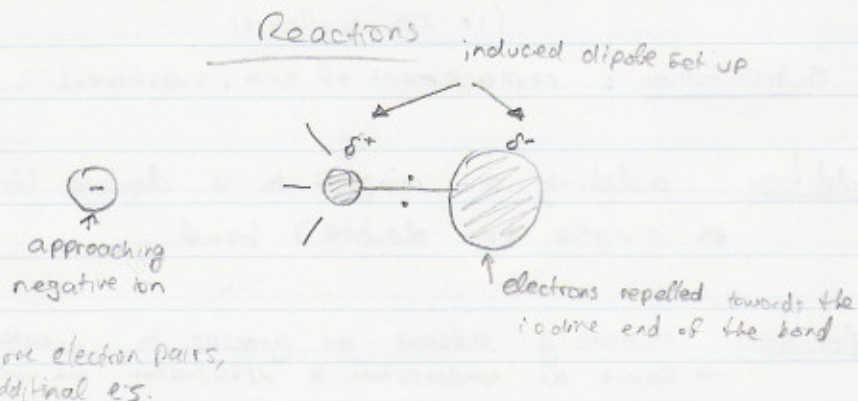 Reactions
induced dipole set up
δ+
δ-
-
approaching
negative ion
electrons repelled towards the
iodine end of the bond
electron pairs,